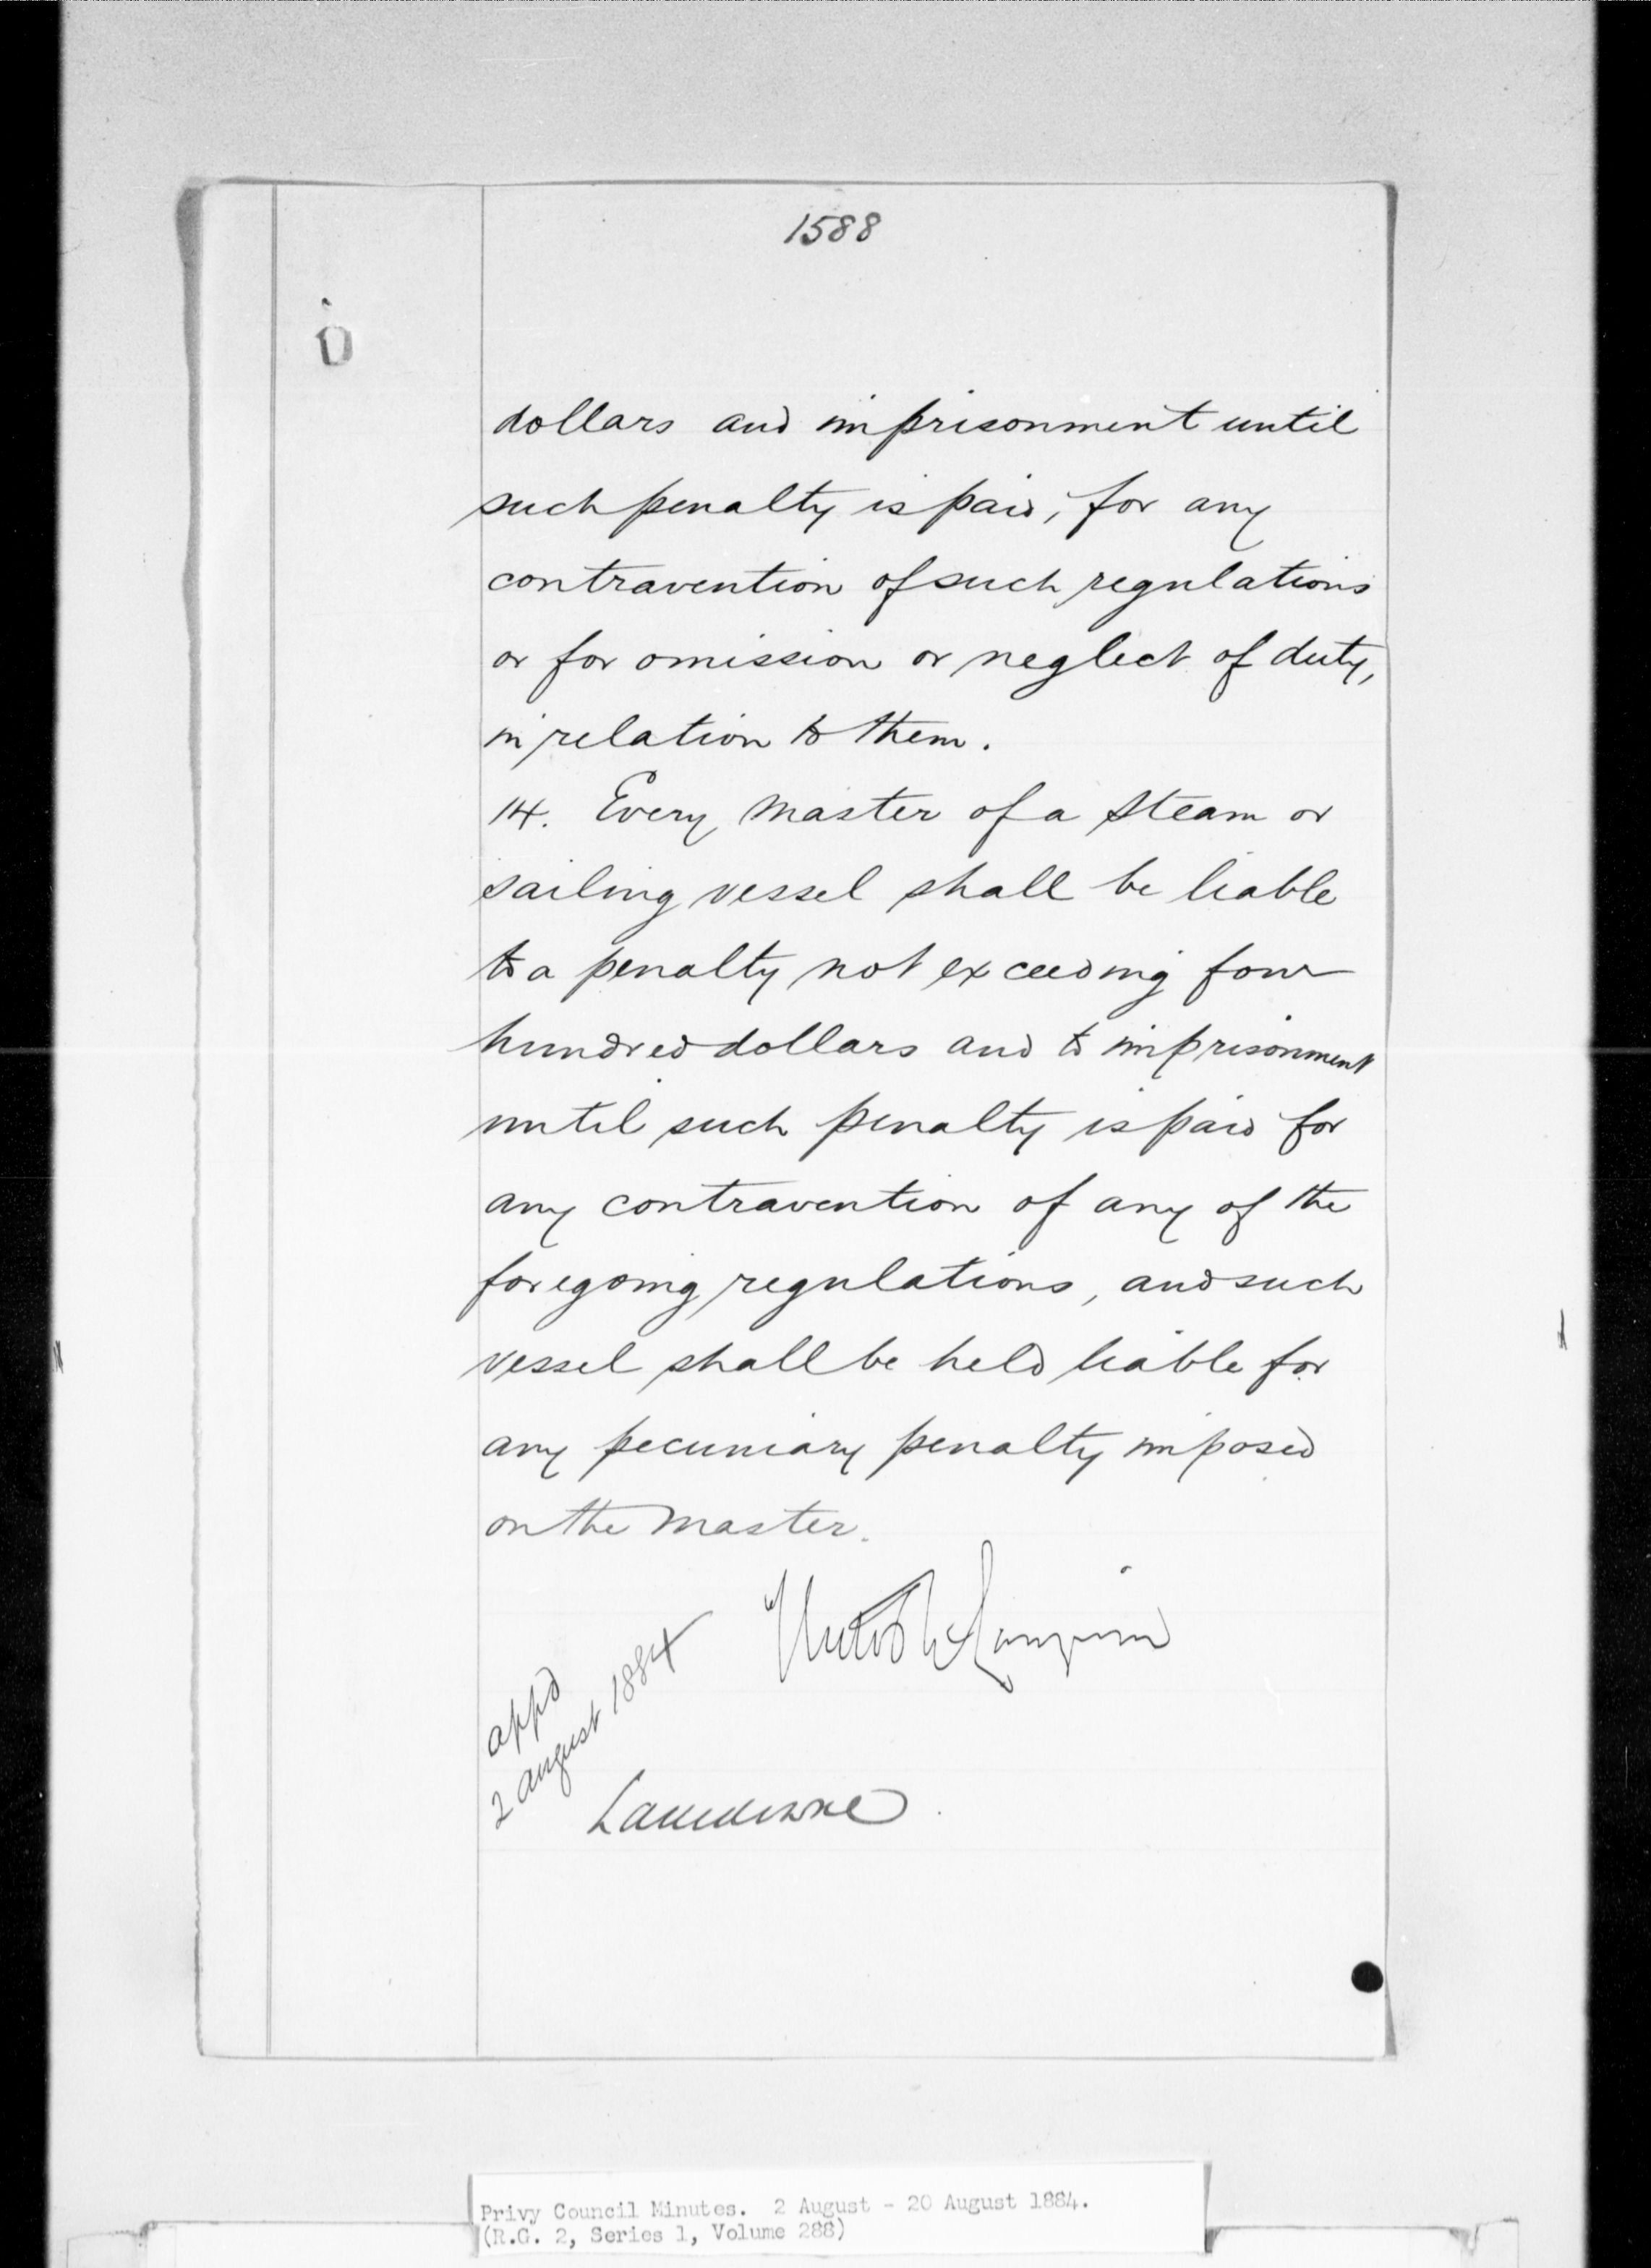 1588
dollars and imprisonment until
such penalty is paid, for any
contravention of such regulations
or for omission or neglect of duty,
in relation to them.
14. Every Master of a Steam or
sailing vessel shall be liable
to a penalty not exceeding four
hundred dollars and to imprisonment
until such penalty is paid for
any contravention of any of the
foregoing regulations, and such
vessel shall be held liable for
any pecuniary penalty imposed
on the Master.
appd
2 August 1884
Lansdowne
Privy Council Minutes. 2 August - 20 August 1884.
(R.G. 2, Series 1, Volume 288)